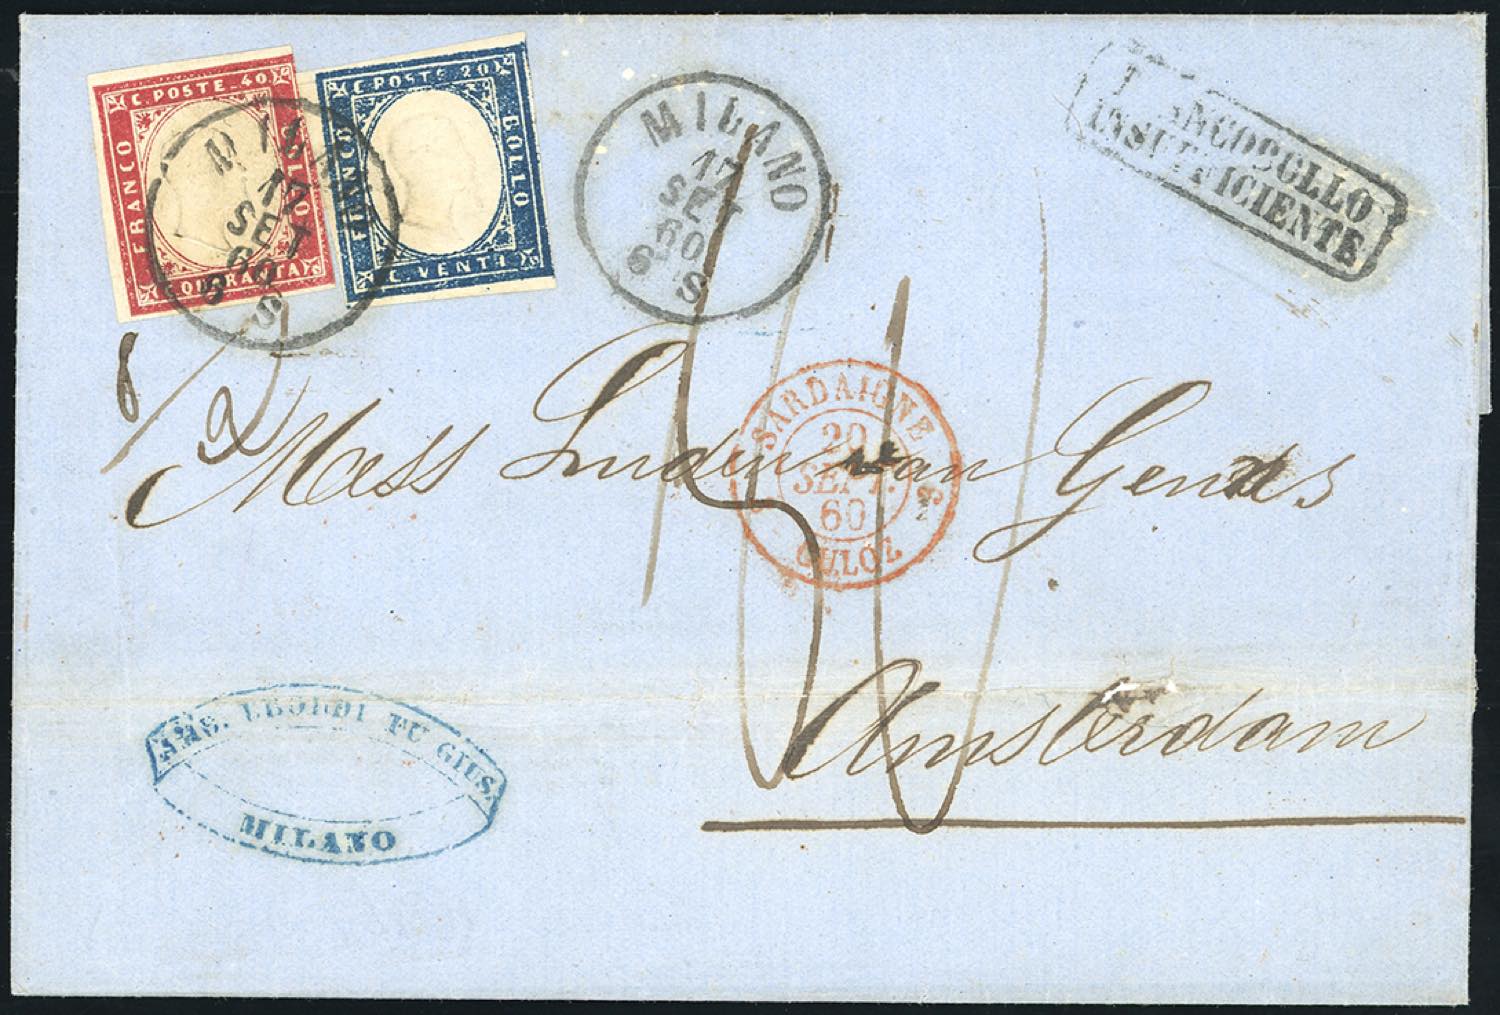 C. POSTE. 40
FRANCO
BOLLO
C. QUARANTA
C. POSTE. 20
FRANCO
BOLLO
C. VENTI
MILANO
17
SET
60
6 S
MILANO
17
SET
60
6 S
FRANCOBOLLO
INSUFFICIENTE
8/2
SARDAIGNE
20
SEPT.
60
CULOZ
Mess van
Amsterdam
FU GIUS.
MILANO